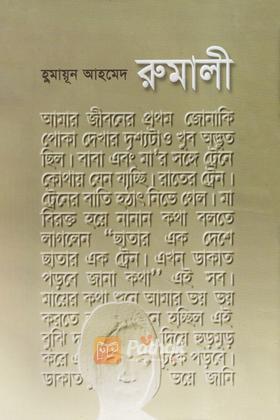 হুমায়ূন আহমেদ
রুমালী
আমার জীবনের প্রথম জোনাকি
পোকা দেখার দৃশ্যটাও খুব অদ্ভুত
ছিল। বাবা এবং মা'র সঙ্গে ট্রেনে
কোথায় যেন যাচ্ছি। রাতের ট্রেন।
ট্রেনের বাতি হঠাৎ নিভে গেল। মা
বিরক্ত হয়ে নানান কথা বলতে
লাগলেন "ছাতার এক দেশে
ছাতার এক ট্রেন। এখন ডাকাত
পড়বে জানা কথা" এই সব।
মায়ের কথা শুনে আমার ভয় ভয়
করতে হচ্ছিল এই
বুঝি দিয়ে হুড়মুড়
করে পড়বে।
ডাকাত ভয়ে আমি